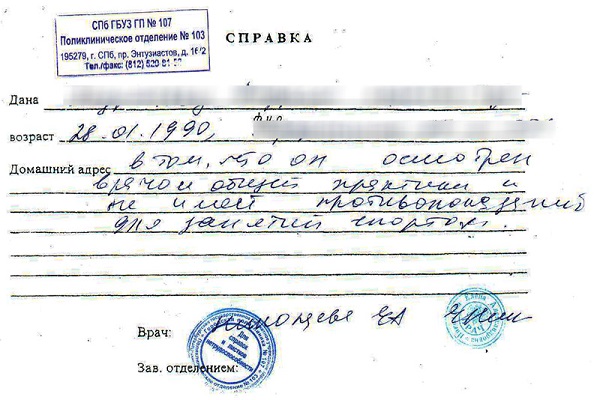 СПб ГБУЗ ГП № 107
Поликлиническое отделение № 103
195279, г. СПб, пр. Энтузиастов, д. 16/2
Тел./факс: (812)
СПРАВКА
Дана
возраст 28.01.1990,
Домашний адрес в том, что он осмотрен
врачом общей практики и
не имеет противопоказаний
для занятий спортом.
Врач:
Зав. отделением:
Для справок и листков нетрудоспособности
Елена
ВРАЧ